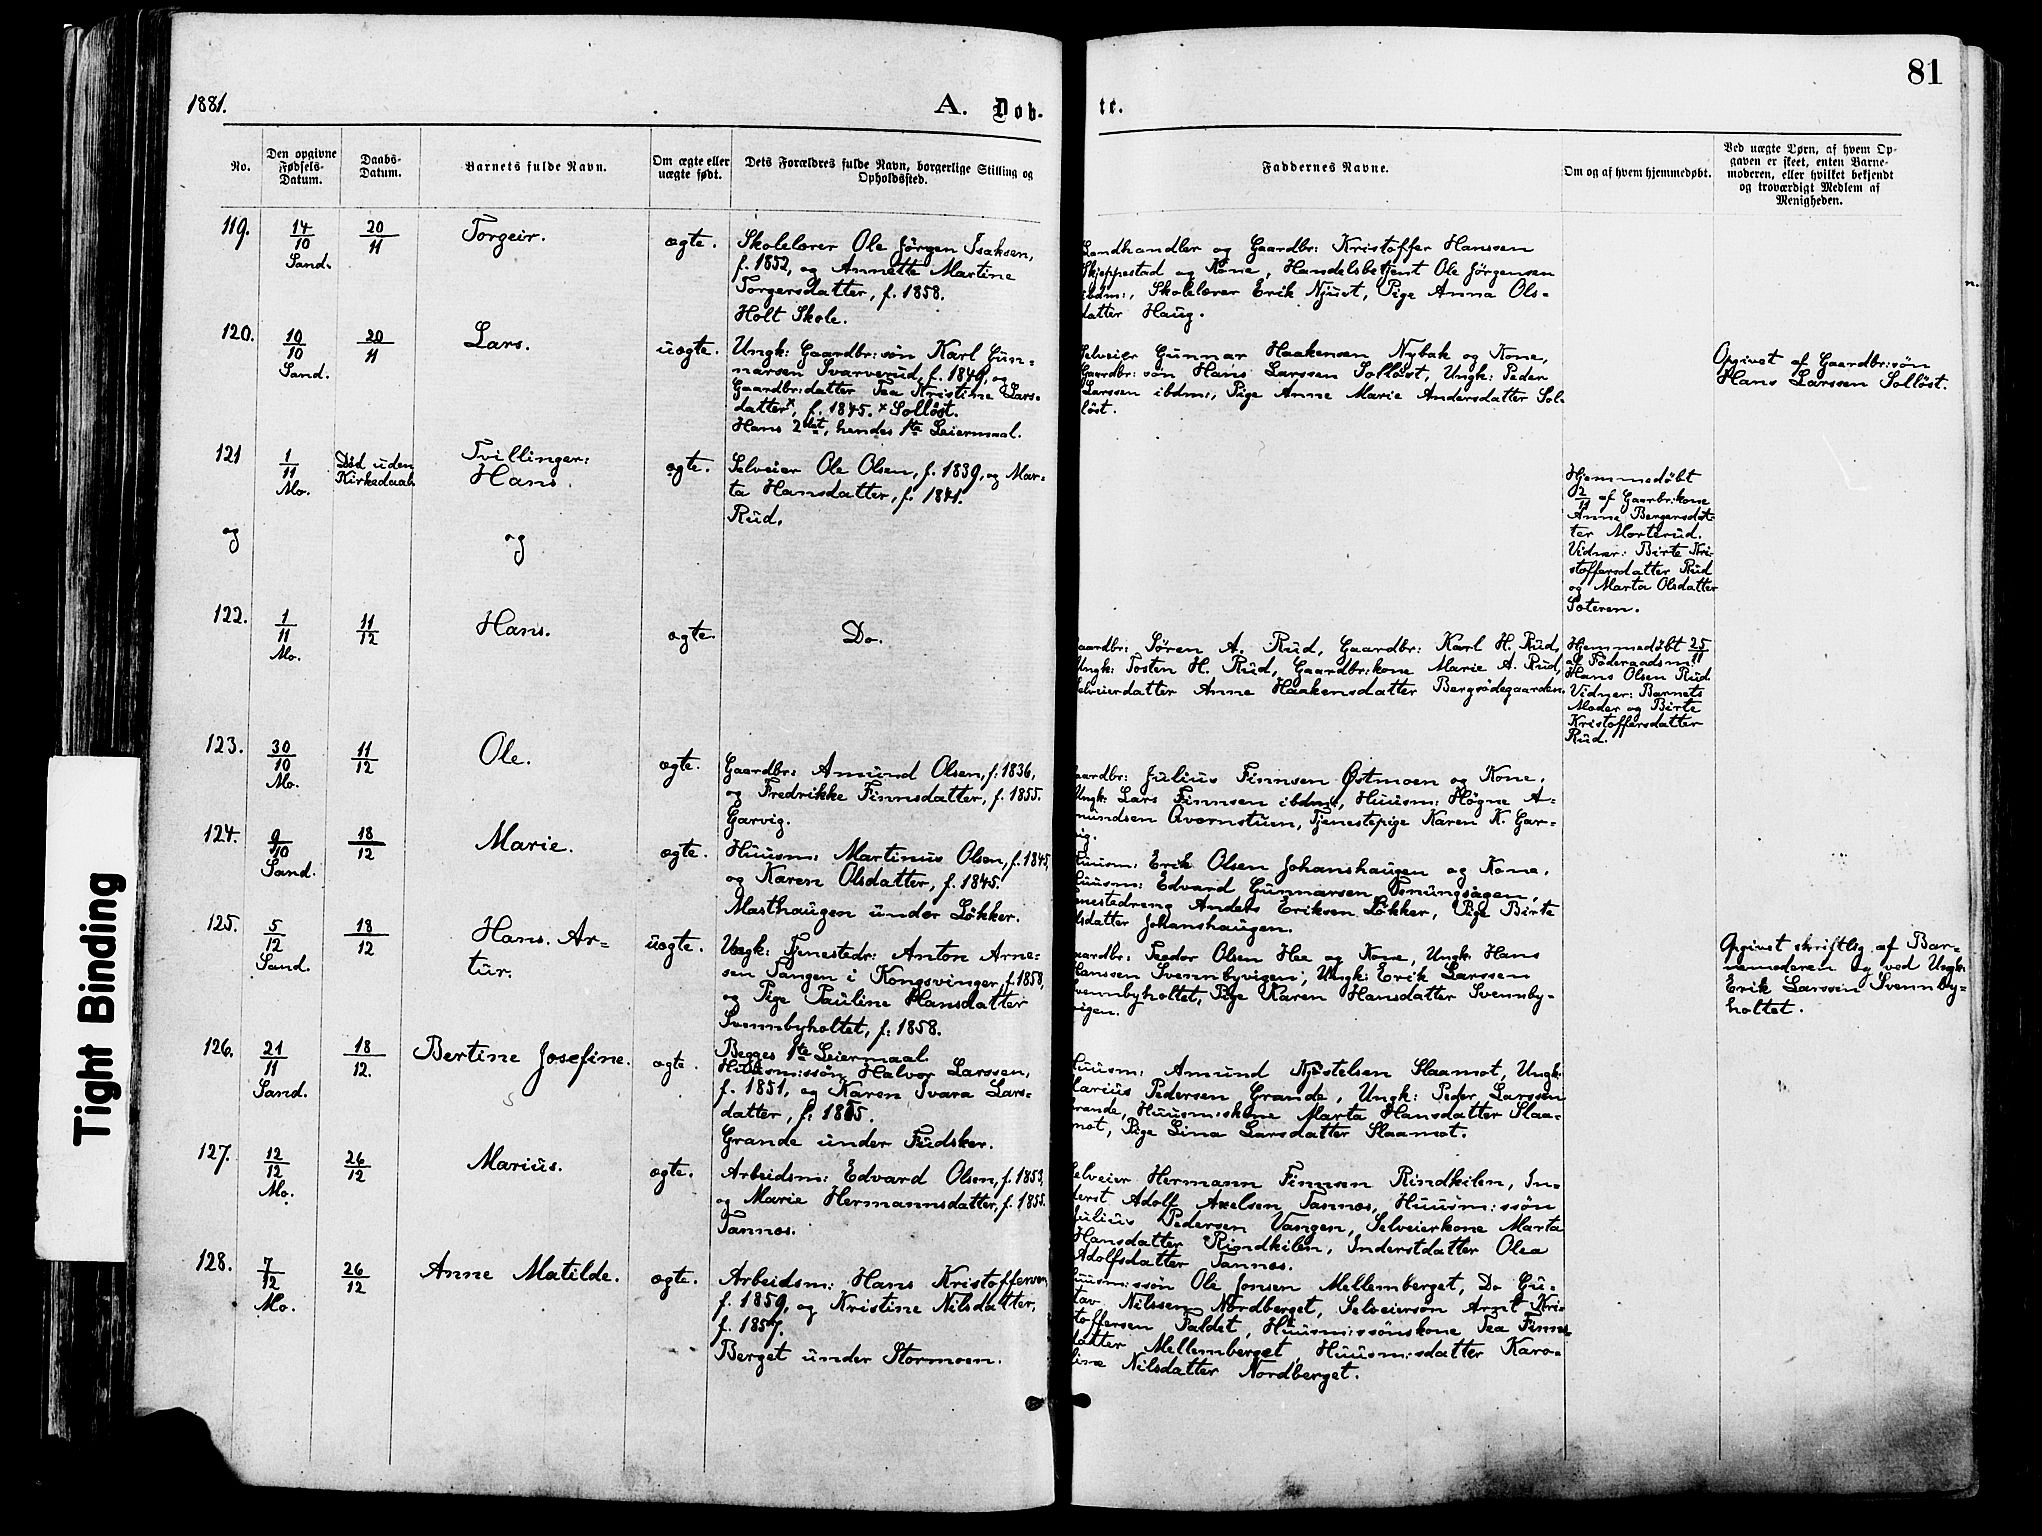 81
1881.
A. Døb-
te.
No.
Den opgivne
Fødsels-
Datum.
Daabs-
Datum.
Barnets fulde Navn.
Om ægte eller
uægte født.
Dets Forældres fulde Navn, borgerlige Stilling og
Opholdssted.
Faddernes Navne.
Om og af hvem hjemmedøbt.
Ved uægte Børn, af hvem Op-
gaven er skeet, enten Barne-
moderen, eller hvilket bekjendt
og troværdigt Medlem af
Menigheden.
119.
14/10
Sand.
20/11
Torgeir.
ægte.
Skolelærer Ole Jørgen Isaksen,
f. 1852, og Annette Martine
Torgersdatter, f. 1858.
Holt Skole.
Landhandler og Gaardbr: Kristoffer Hanssen
Skjeppestad og Kone, Handelsbetjent Ole Jørgensen
ibdm:, Skolelærer Erik Njust, Pige Anna Ols-
datter Haug.
120.
10/10
Sand.
20/11
Lars.
uægte.
Ungk: Gaardbr:søn Karl Gun-
narsen Svarverud, f. 1849, og
Gaardbr:datter Tea Kristine Lars-
datter x, f. 1845. x Solløst.
Hans 2det, hendes 1ste Leiermaal.
Selveier Gunnar Haakensen Nybak og Kone,
Gaardbr: søn Hans Larssen Solløst, Ungk: Peder
Larssen ibdm:, Pige Anne Marie Andersdatter Sol-
løst.
Opgivet af Gaardbr:søn
Hans Larssen Solløst.
121
1/11
Mo.
Død uden
Kirkedaab
Tvillinger:
Hans.
ægte.
Selveier Ole Olsen, f. 1839, og Mar-
ta Hansdatter, f. 1841.
Rud.
Hjemmedøbt
2/11 af Gaardbr:kone
Anne Bergersdat-
ter Morterud.
Vidner: Birte Kri-
stoffersdatter Rud
og Marta Olsdatter
Sæteren.
og
og
122.
1/11
Mo.
11/12
Hans.
ægte.
Do.
Gaardbr: Søren A. Rud, Gaardbr: Karl H. Rud,
Ungk: Tosten H. Rud, Gaardbr:kone Marie A. Rud,
Selveierdatter Anne Haakensdatter Bergsødegaarden.
Hjemmedøbt 25/11
af Føderaadsm:
Hans Olsen Rud
Vidner: Barnets
Moder og Birte
Kristoffersdatter
Rud.
123.
30/10
Mo.
11/12
Ole.
ægte.
Gaardbr: Amund Olsen, f. 1836,
og Fredrikke Finnsdatter, f. 1855.
Garvig.
Gaardbr: Julius Finnsen Østmoen og Kone,
Ungk: Lars Finnsen ibdm:, Huusm: Høgne A-
mundsen Qværnstuen, Tjenestepige Karen K. Gar-
vig.
124.
9/10
Sand.
18/12
Marie.
ægte.
Huusm: Martinus Olsen, f. 1845,
og Karen Olsdatter, f. 1845.
Masthaugen under Løkker.
Huusm: Erik Olsen Johanshaugen og Kone,
Huusm: Edvard Gunnarsen
Tjenestedreng Anders Eriksen Løkker, Pige Birte
Olsdatter Johanshaugen.
125.
5/12
Sand.
18/12
Hans Ar-
tur.
uægte.
Ungk: Tjenestedr: Anton Arne-
sen Tangen i Kongsvinger, f. 1858,
og Pige Pauline Hansdatter
Svennbyholtet, f. 1858.
Begges 1ste Leiermaal.
Gaardbr: Teodor Olsen Hee og Kone, Ungk: Hans
Hanssen Svennbyvigen, Ungk: Erik Larssen
Svennbyholtet, Pige Karen Hansdatter Svennby-
vigen.
Opgivet skriftlig af Bar-
nemoderen og ved Ungk:
Erik Larssen Svennby-
holtet.
126.
21/11
Sand.
18/12.
Bertine Josefine.
ægte.
Huusm:søn Halvor Larssen,
f. 1851, og Karen Svara Lars-
datter, f. 1855.
Grande under Fudsker.
Huusm: Amund Njøstelsen Slaamot, Ungk:
Marius Pedersen Grande, Ungk: Peder Larssen
Grande, Huusm:skone Marta Hansdatter Slaa-
mot, Pige Lina Larsdatter Slaamot.
127.
12/12
Mo.
26/12
Marius.
ægte.
Arbeidsm: Edvard Olsen, f. 1853,
og Marie Hermannsdatter, f. 1855.
Tannæs.
Selveier Hermann Finnsen Rindkilen, In-
derst Adolf Axelsen Tannæs, Huusm:ssøn
Julius Pedersen Vangen, Selveierkone Marta
Hansdatter Rindkilen, Inderstdatter Olea
Adolfsdatter Tannæs.
128.
7/12
Mo.
26/12
Anne Matilde.
ægte.
Arbeidsm: Hans Kristoffersen,
f. 1859, og Kristine Nilsdatter,
f. 1857.
Berget under Stormoen.
Huusm:ssøn Ole Jonsen Mellemberget, Do Gu-
stav Nilssen Nordberget, Selveiersøn Arnt Kri-
stoffersen Faldet, Huusm:ssønskone Tea Finns-
datter Mellemberget, Huusm:sdatter Karo-
line Nilsdatter Nordberget.
Tight Binding